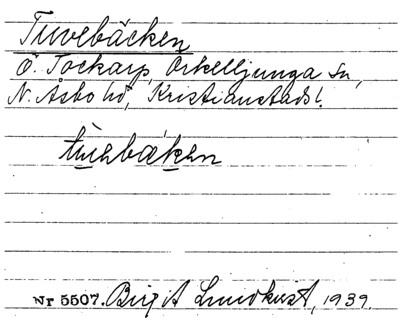 Tuvebäcken
Ö. Tockarp, Örkelljunga sn,
N. Åsbo hd, Kristianstads l.
Nr 5507. Birgit Lundkvist, 1939.